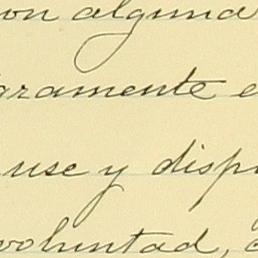 on alguna
aramente e
use y disp
voluntad,